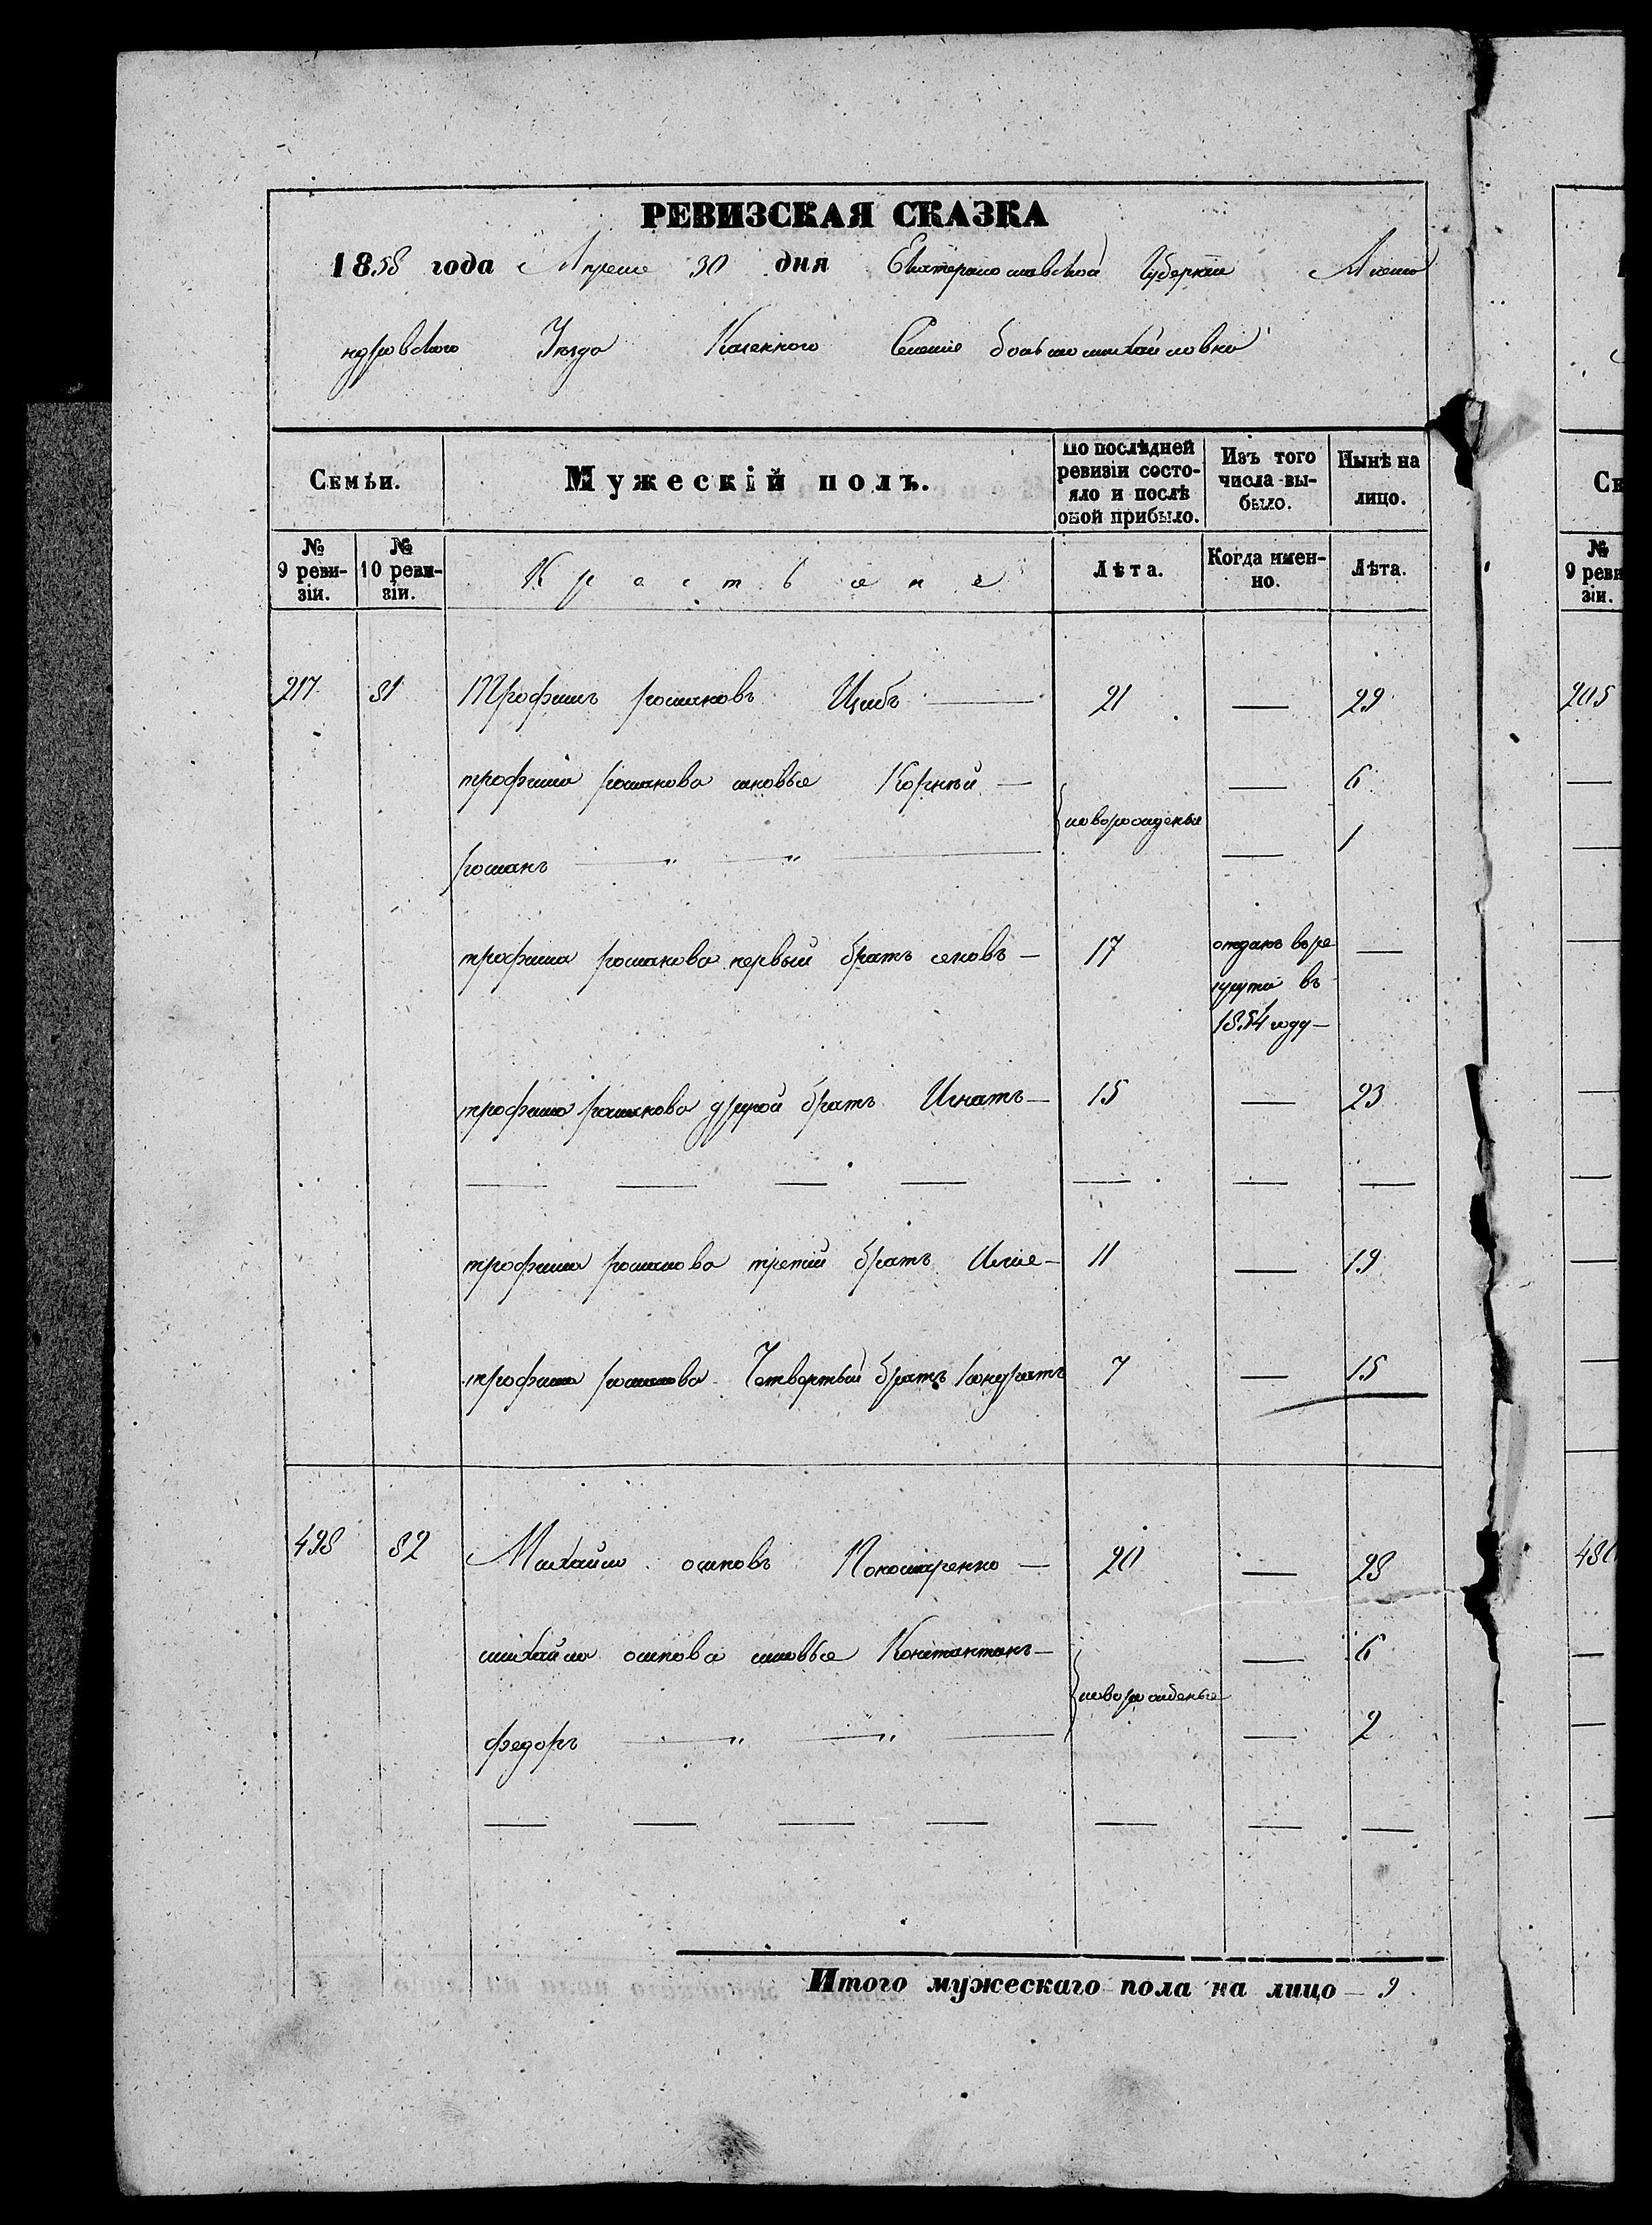 РЕВИЗСКАЯ СКАЗКА
1858 года Апреля 30 дня Екатеринославской Губернии Алекса
ндровского Уезда Казенного Селения большомихайловки
Семьи. Мужескій полъ. По послѣдней ревизіи состояло и послѣ оной прибыло. Изъ того числа выбыло. Нынѣ на лицо.
№ 9 ревизіи. № 10 ревизіи. Крестьяне Лѣта. Когда именно. Лѣта.
217 81 Трофимъ романовъ Цибъ — 21 — 29
трофима романова сыновья Корнѣй — новорожденые — 6
романъ — " — " — — 1
трофима романова первый братъ — 17 отданъ въ ре —
круты въ
1854 году —
трофима романова другой братъ Игнатъ — 15 — 23
— — — — — — —
трофима романова третій братъ Илья — 11 — 19
трофима романова Четвертый братъ кондратъ 7 — 15
498 82 Михайло осиповъ — 20 — 28
михайла осипова сыновья Констант — новорожденые — 6
федоръ — " — " — — 2
— — — — — — —
Итого мужескаго пола на лицо — 9
Се
№ 9 реви зіи.
205
—
480